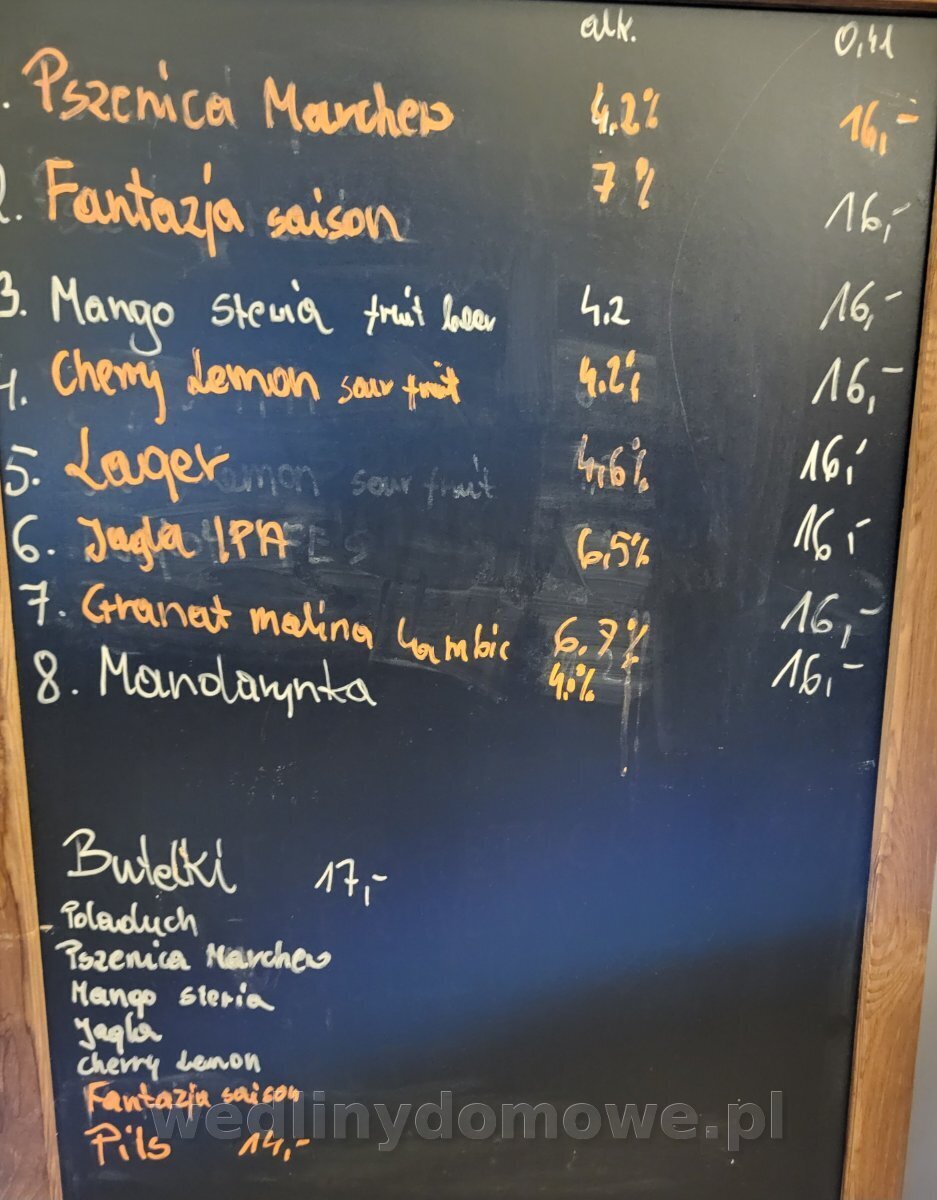 alk. 0,4l
. Pszenica Marchew 4.2% 16,-
2. Fantazja saison 7% 16,-
3. Mango stevia fruit beer 4,2 16,-
4. Cherry Lemon sour fruit 4.2% 16,-
5. Lager 4,6% 16,-
Lemon sour fruit
6. Jagla IPA 6,5% 16,-
7. Granat malina Lambic 6.7% 16,-
8. Mandarynka 16,-
Butelki 17,-
Poladuch
Pszenica Marchew
Mango steria
Jagla
Cherry Lemon
Fantazja saison
Pils 14,-
wedlinydomowe.pl